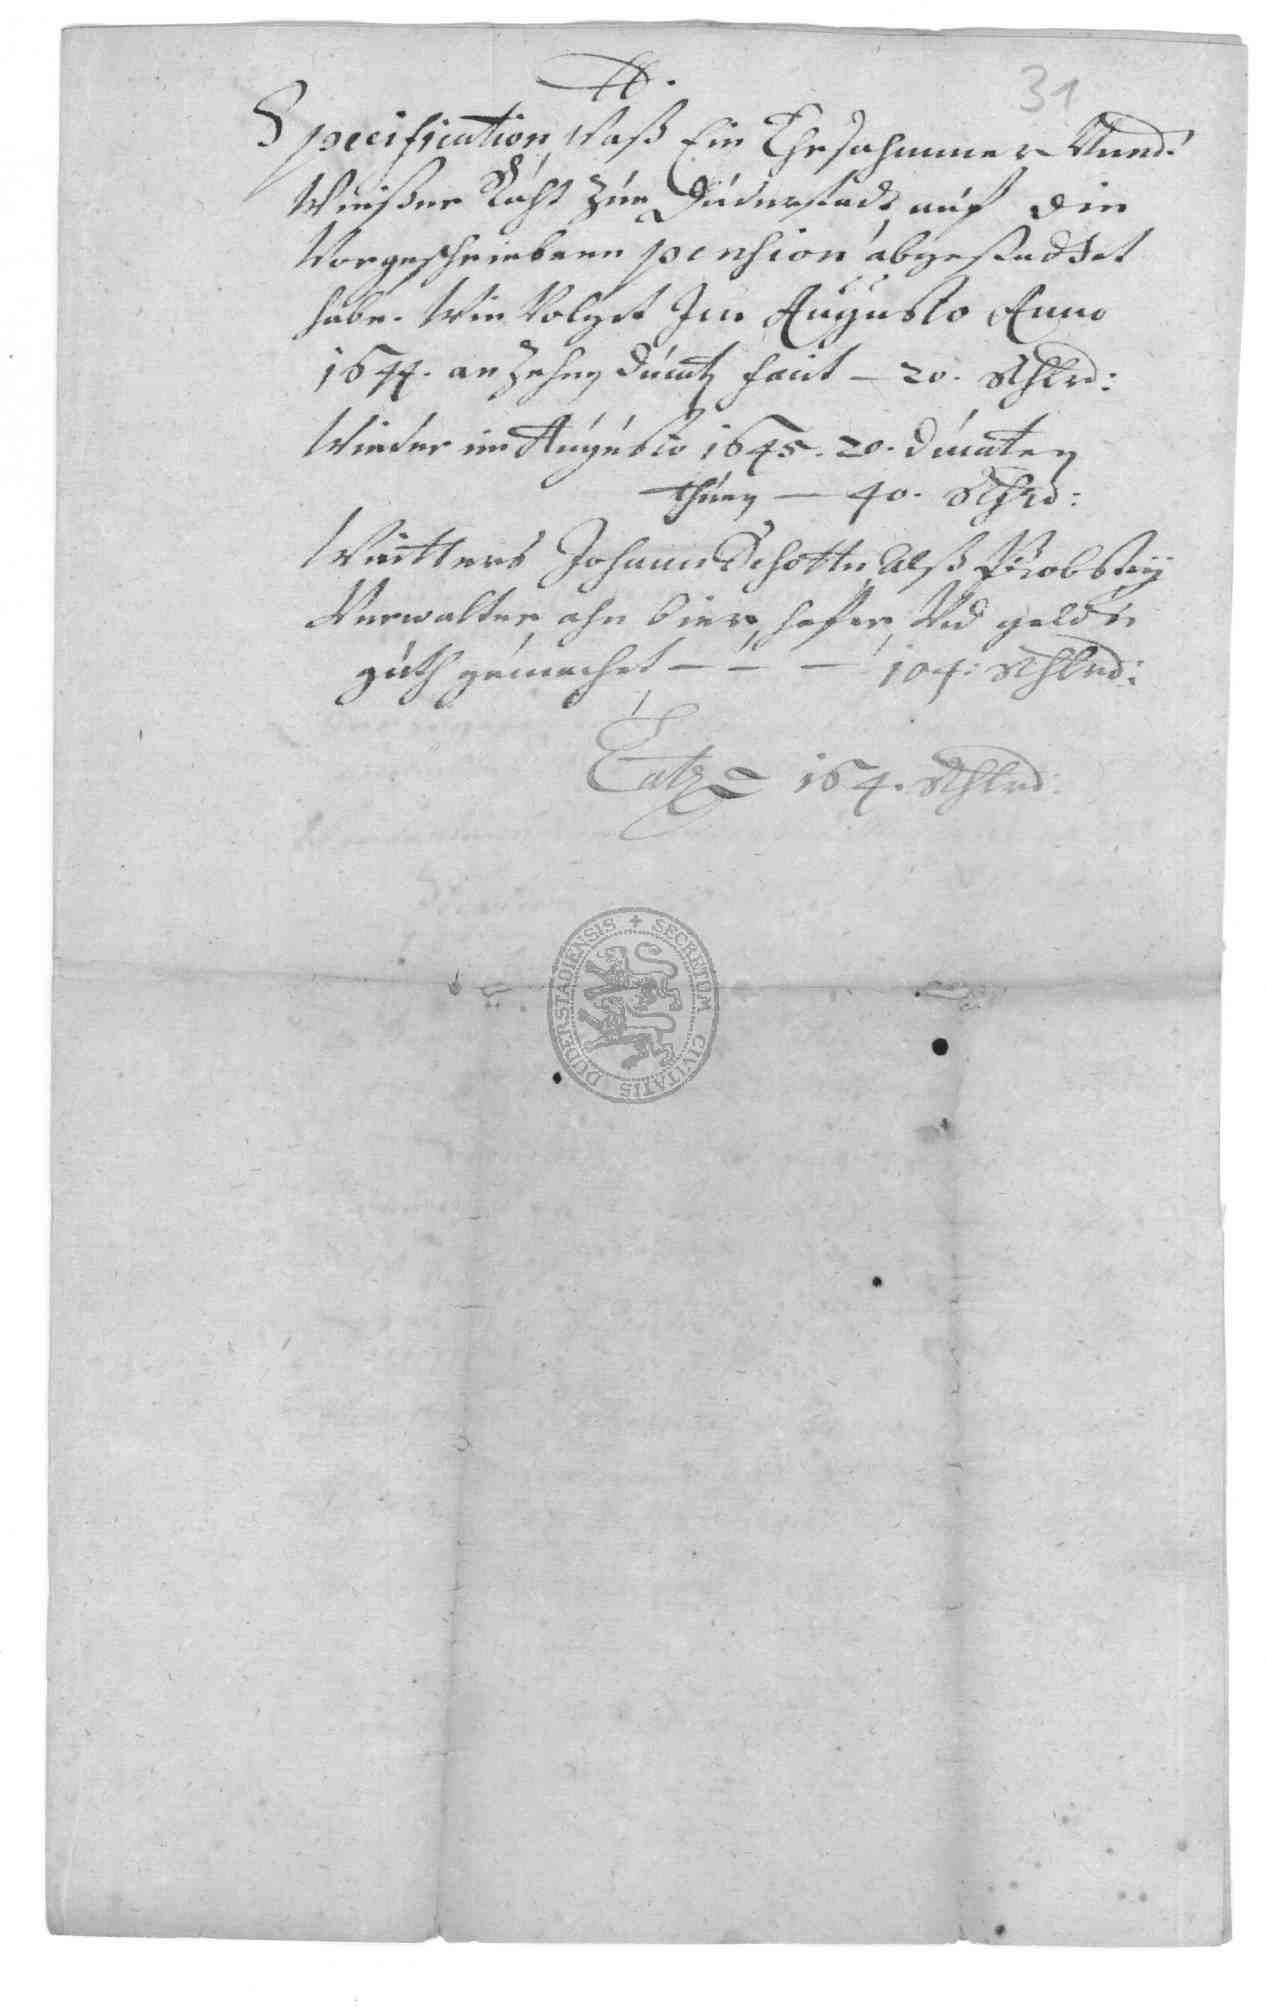 A.
31
Specification, Waß Ein Ehrsahmmer Unnd
Weißer Raht zue Duderstadt, auf die
Vorgeschriebene pension abgestadtet
habe. Wie Volget Im Augusto Anno
1644. an Zehen Ducat facit – 20. Rthlrd:
Wieder im Augusto 1645. 20. Ducaten
thuen – 40. Rthrd:
Weitters Johann Schotte, Alß Probstey
Verwalter, ahn bier, hafer, Vnd geldt
guth gemachet – – – 104: Rthlrd:
Latz 164. Rthlrd:
SECRETUM CIVITATIS DUDERSTADIENSIS